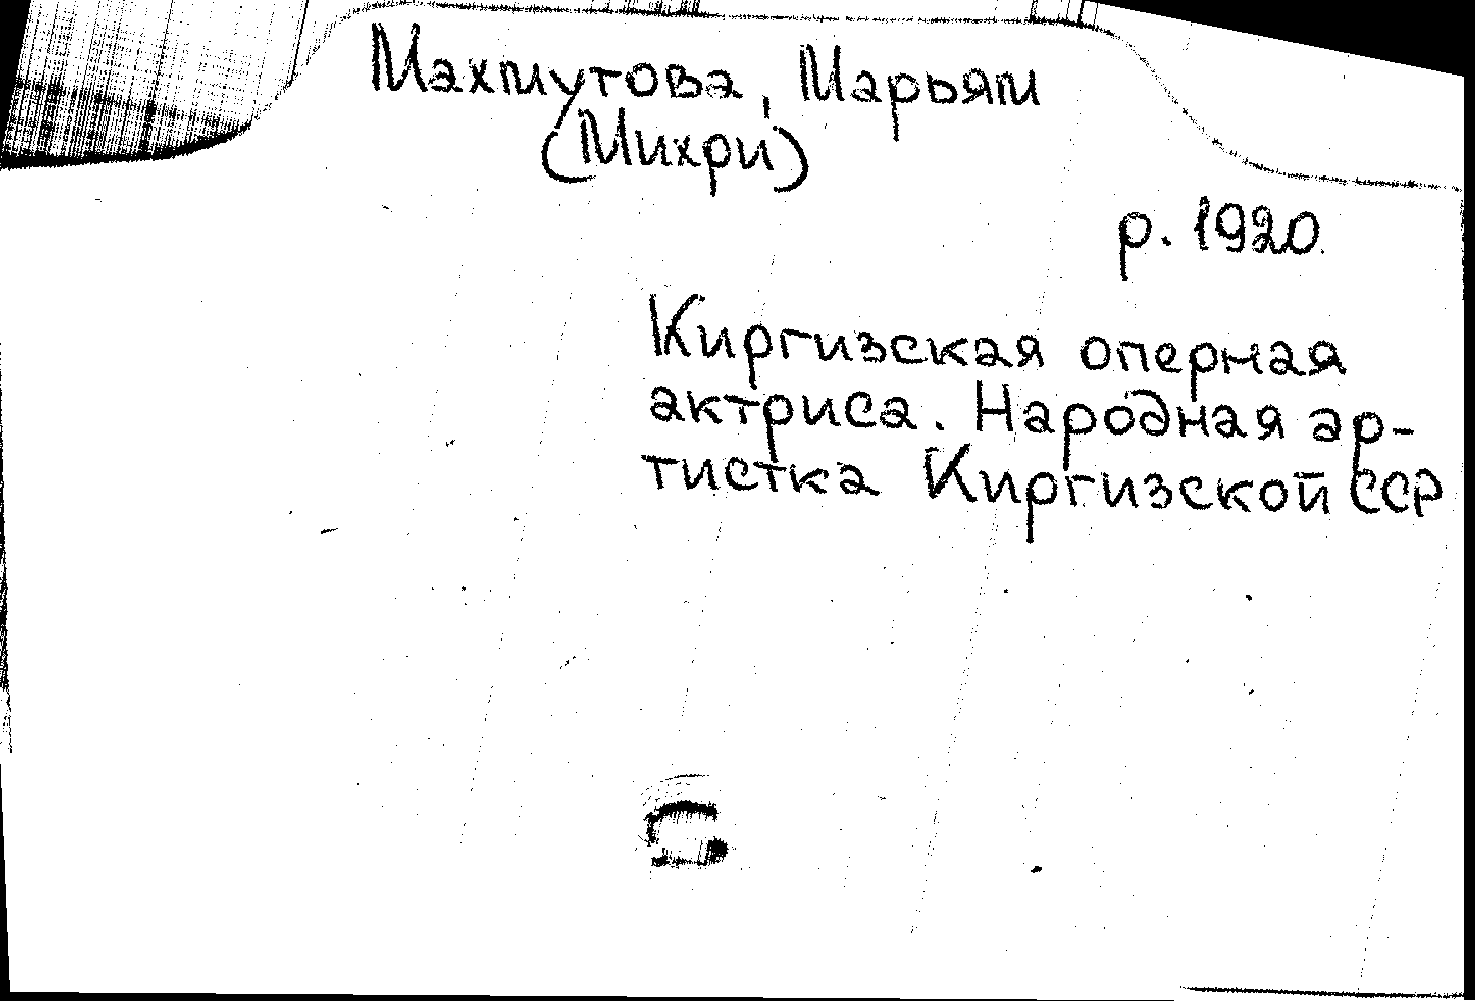 Махмутова, Марьям
(Михри)
р. 1920
Киргизская оперная
актриса. Народная ар-
тистка Киргизской ССР